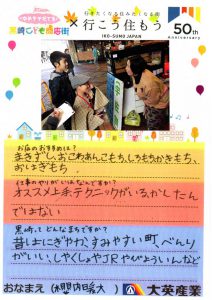 ゆめタネそだてる
黒崎こども商店街
行きたくなる住みたくなる街
×行こう住もう
IKO-SUMO JAPAN
50th
Anniversary
お店のおすすめは?
まきずし、おこわあんこもち、しろもちかきもち、
おはぎもち
仕事のやりがいはなんですか?
オススメ上手テクニックがいる、かしたん
ではない
黒崎ってどんなまちですか?
昔はにぎやか、すみやすい町べんり
がいい、しやくしょJRやひょういんなど
おなまえ
大英産業